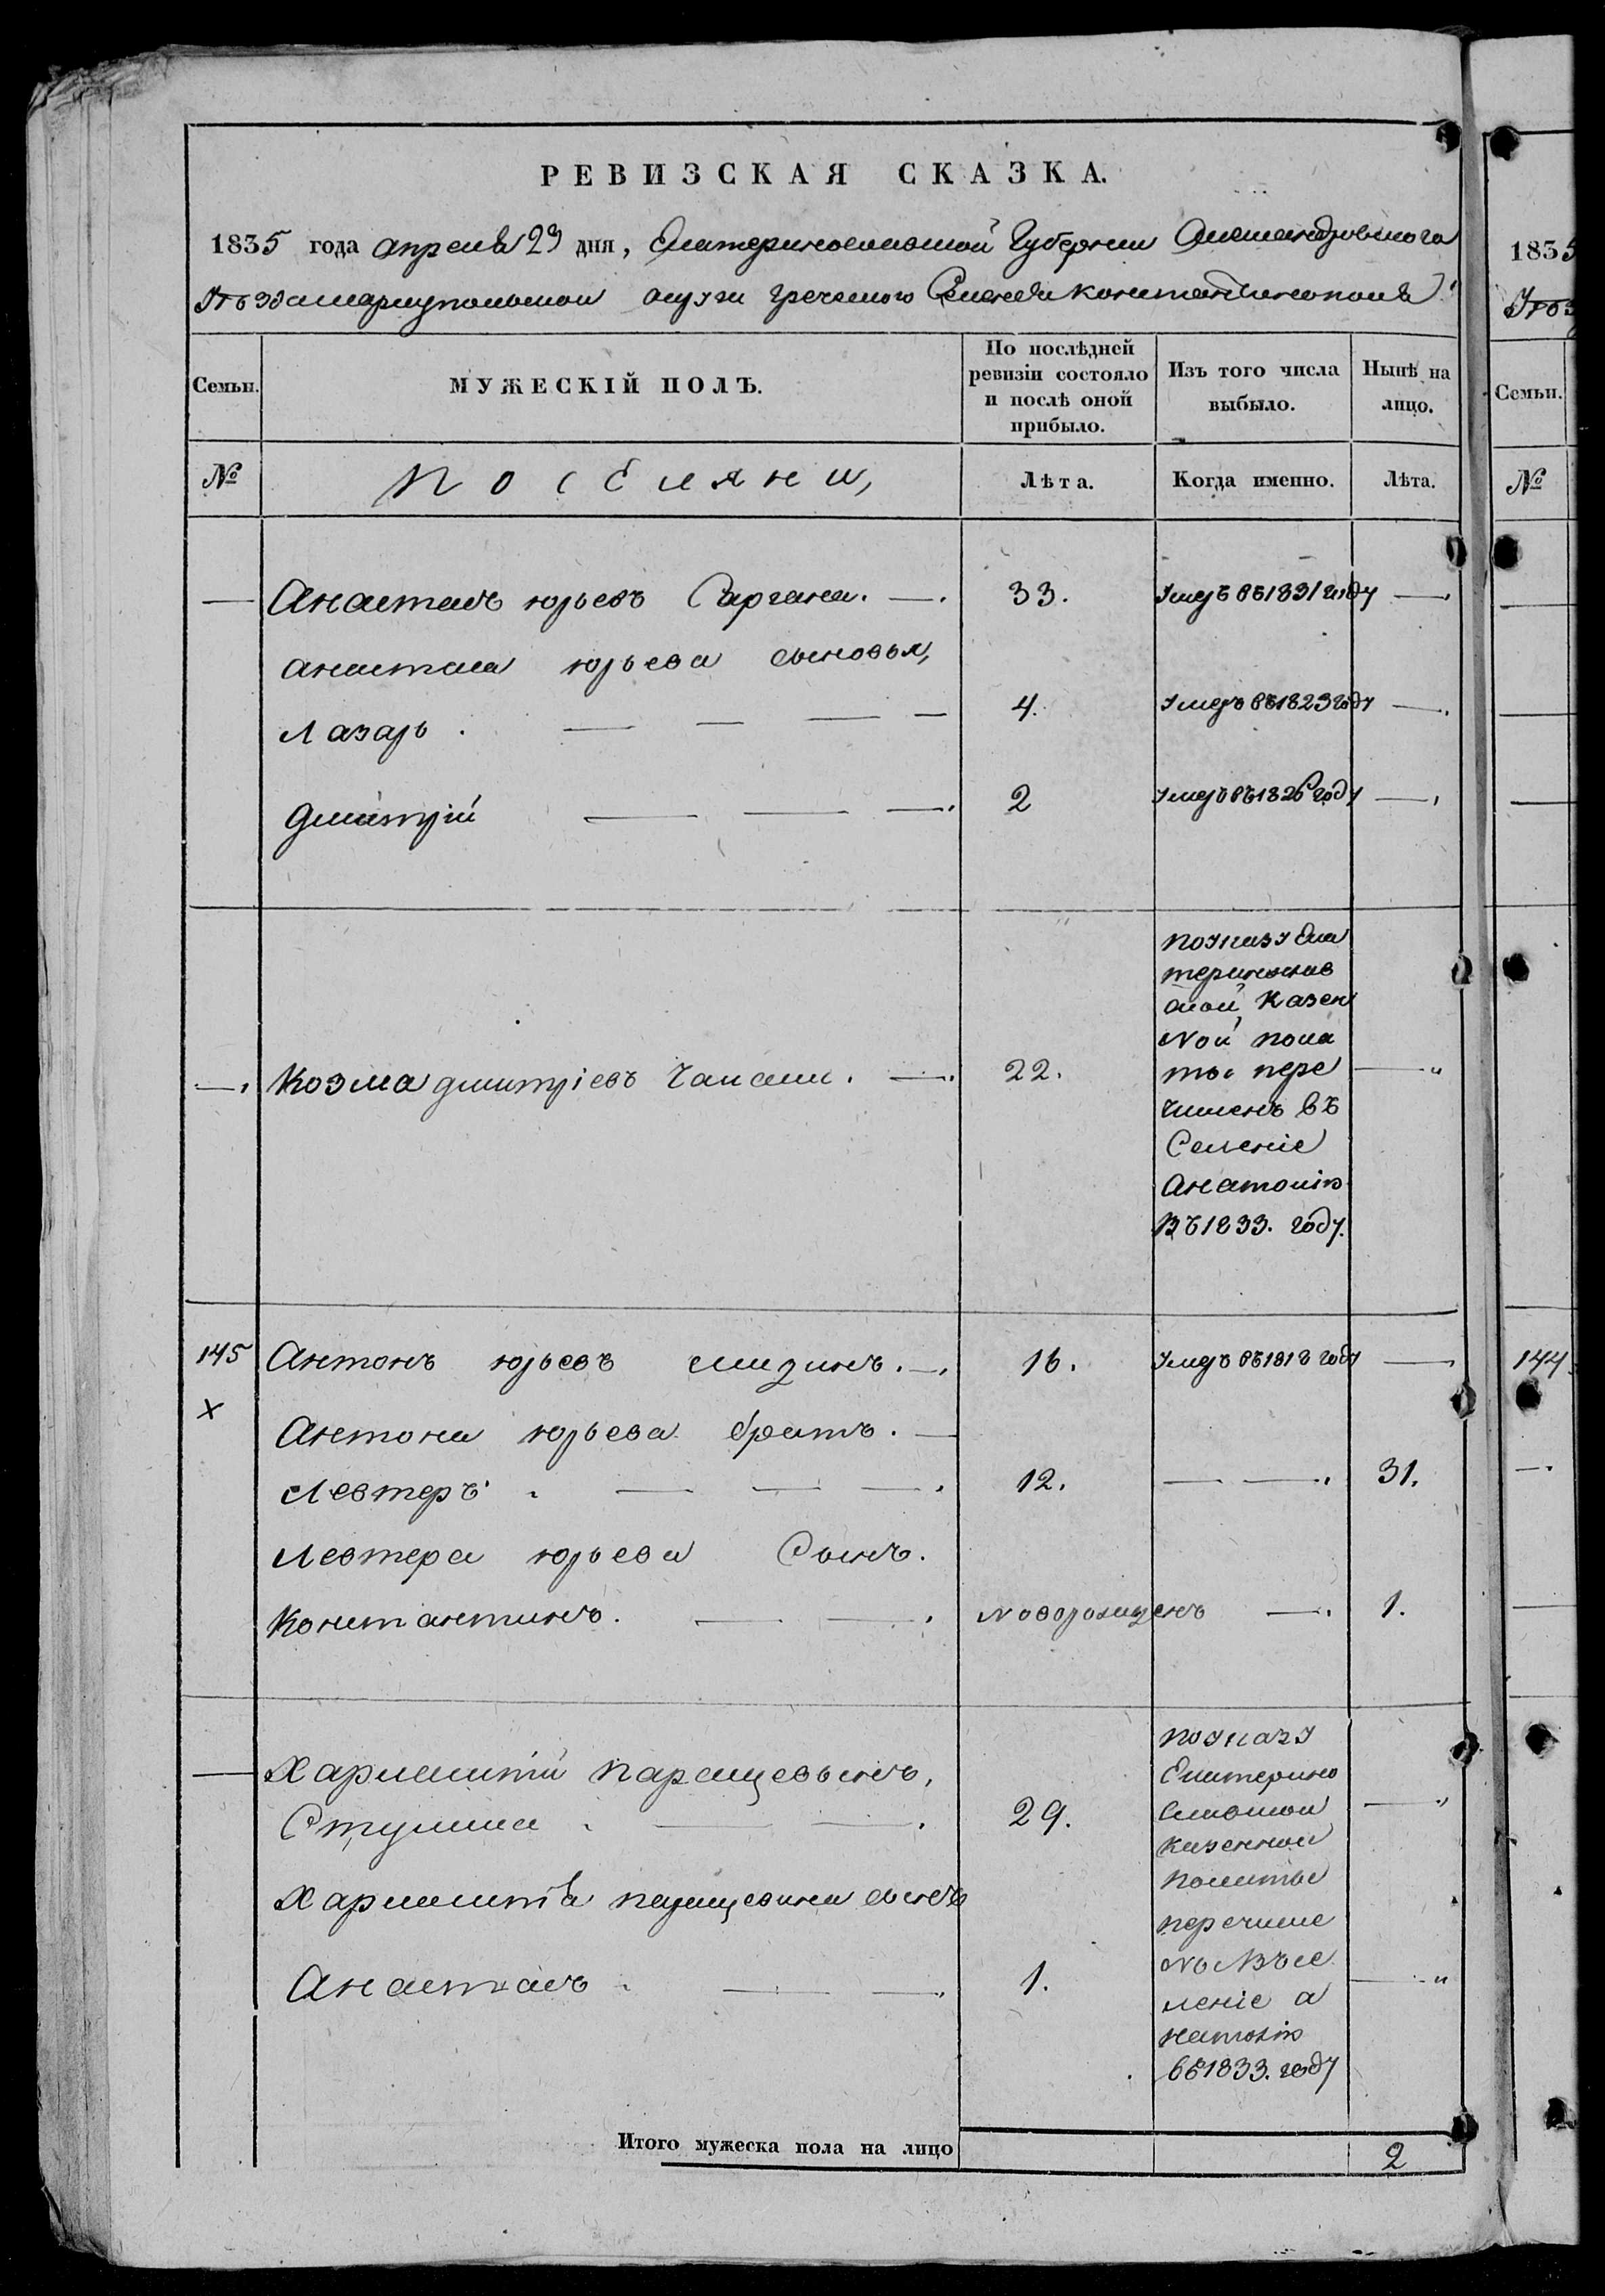 РЕВИЗСКАЯ СКАЗКА.
1835 года апреля 23 дня, Екатеринославской Губернии Александровского
Уезда мариупольской округи греческого Селения константинополя
Семьи. МУЖЕСКІЙ ПОЛЪ. По послѣдней ревизіи состояло и послѣ оной прибыло. Изъ того числа выбыло. Нынѣ на лицо.
№ Поселяни, Лѣта. Когда именно. Лѣта.
— Анастасъ юрьевъ —. 33. Умеръ въ 1831 году —.
анастаса юрьева сыновья,
Лазарь . — — — — 4. Умеръ въ 1823 году —.
дмитрій — — —. 2 Умеръ въ 1826 году —.
—. Козма дмитріевъ —. 22. —"
по указу Ека
теринослав
ской казен
Ной пала
ты пере
численъ въ
Селеніе
Анатолію
Въ 1833. году.
145 Антонъ юрьевъ —. 16. Умеръ въ 1818 году —
х Антона юрьева братъ. —
Левтеръ . — — —. 12. — —. 31.
Левтера юрьева Сынъ.
Константинъ. — —. Новорожденъ —. 1.
— Харлампій паращевынъ,
. — —. 29. —"
Харлампія паращевина сынъ
Анастасъ . — —. 1. —"
по указу
Екатерино
славской
казенной
палаты
перечисле
Ны Въ се
леніе а
натолію
въ 1833. году
Итого мужеска пола на лицо 2
1835
Уез
Семьи.
№
144.